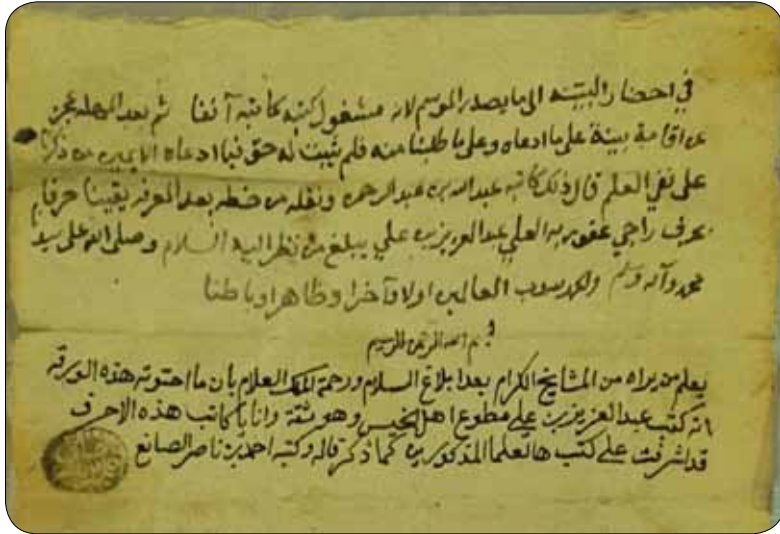 في احضار البينه الى ما يصدر الموسم لانه مشغول كتبه كاتبه آنفا ثم بعد المهله عجز
عن اقامة بينة على ما ادعاه وعلى ما طلبنا منه فلم يثبت له حق فيما ادعاه الا يمين من ذكرنا
على نفي العلم قال ذلك كاتبه عبدالله بن عبدالرحمن ونقله من خطه بعد المعرفه يقينا حرفا
بحرف راجي عفو ربه العلي عبدالعزيز بن علي يبلغ من نظر اليه السلام وصلى الله على سيدنا
محمد وآله وسلم والحمد لله رب العالمين اولا وآخرا وظاهرا وباطنا
بسم الله الرحمن الرحيم
يعلم من يراه من المشايخ الكرام بعد ابلاغ السلام ورحمة الملك العلام بان ما احتوته هذه الورقه
انه كتب عبدالعزيز بن علي مطوع اهل الخيس وهو ثقة وانا يا كاتب هذه الاحرف
قد اشرفت على كتب هالعلما المذكورين كما ذكر قاله وكتبه احمد بن ناصر الصانع